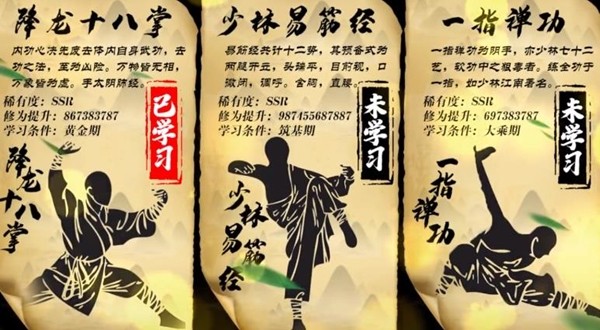 降龙十八掌
内功心决先废去体内自身武功，去
功之法，至为凶险。万物皆无相，
万象皆为虚。手太阴肺经。
稀有度：SSR
修为提升：867383787
学习条件：黄金期
已学习
降龙
十八掌
少林易筋经
易筋经共计十二势，其预备式为
两腿开立，头端平，目前视，口
微闭，调呼。含胸，直腰。
稀有度：SSR
修为提升：987455687887
学习条件：筑基期
未学习
少林易筋经
一指禅功
一指禅功为阴手，亦少林七十二
艺，软功中之极毒者。练全功于
一指，如少林江南著名。
稀有度：SSR
修为提升：697383787
学习条件：大乘期
未学习
一指禅功